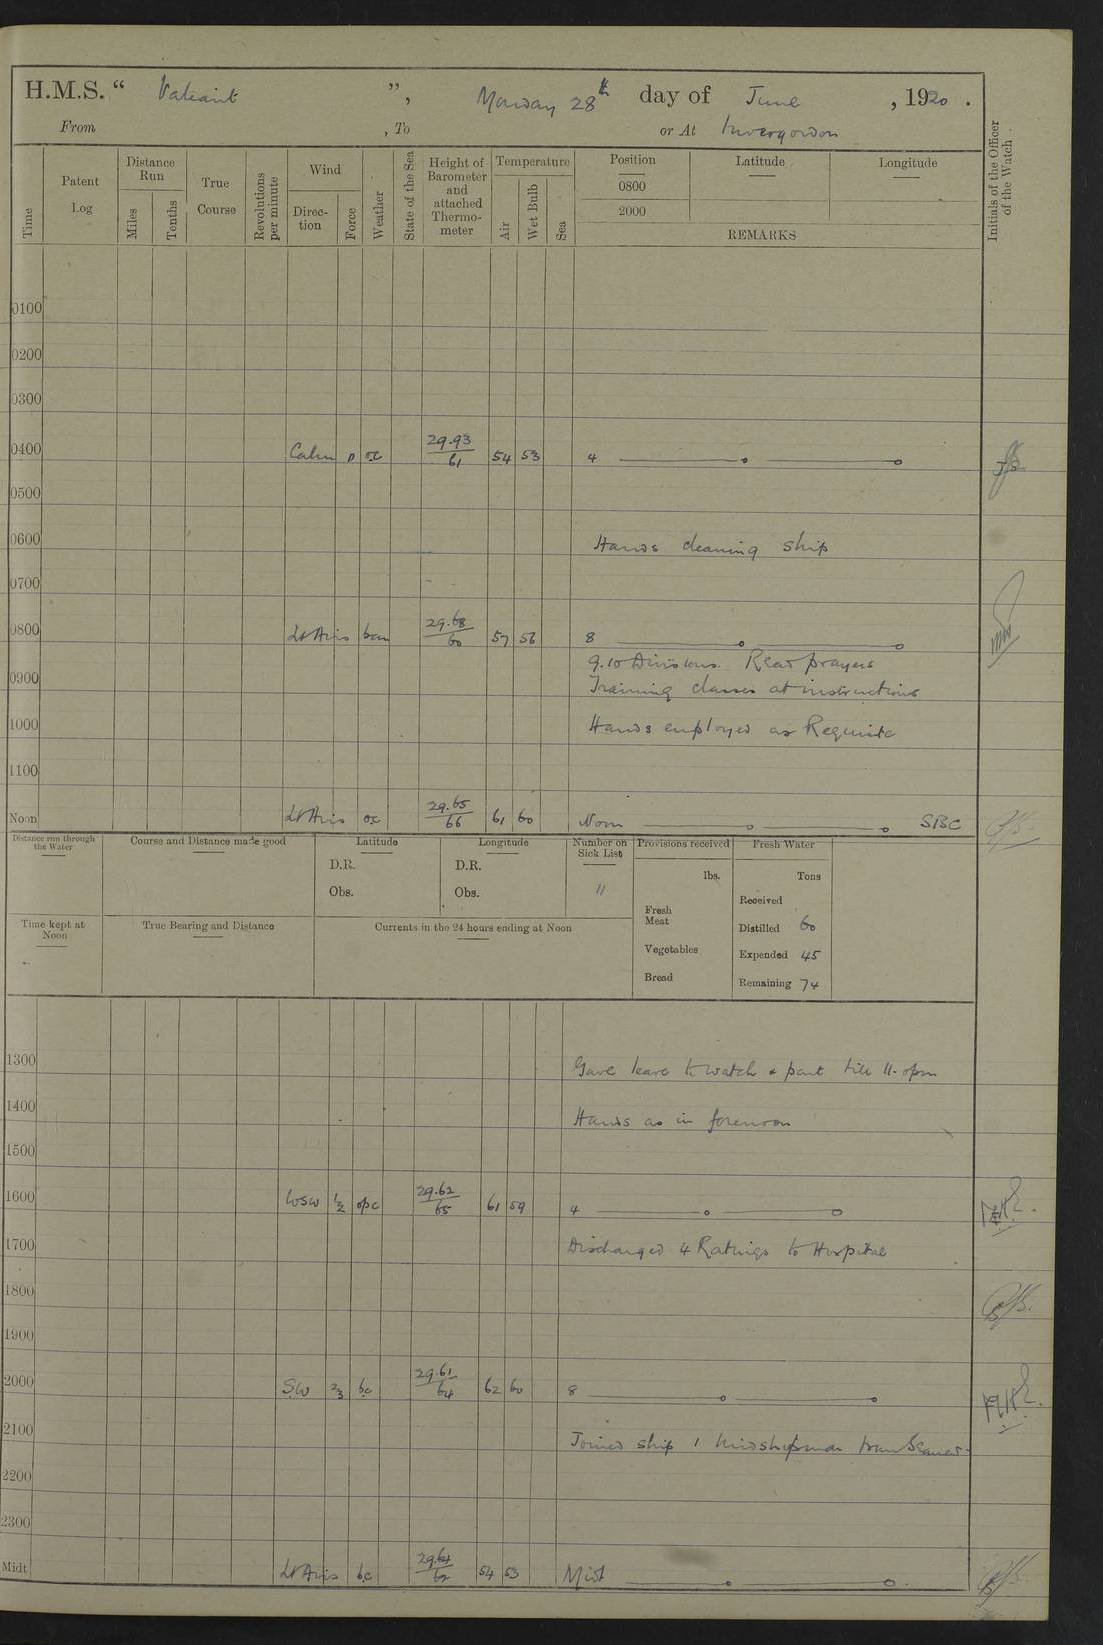 H.M.S. " Valiant ", Monday 28th day of June, 1920.
From , To or At Invergordon
Time
Patent Log
Distance Run
Miles
Tenths
True Course
Revolutions per minute
Wind
Direction
Force
Weather
State of the Sea
Height of Barometer and attached Thermometer
Temperature
Air
Wet Bulb
Sea
Position
0800
2000
Latitude
Longitude
REMARKS
Initials of the Officer of the Watch.
0100
0200
0300
0400 Calm 0 oc 29.93/61 54 53 4
0500
0600 Hands cleaning ship
0700
0800 Lt Airs bcm 29.68/60 57 56 8
9.10 Divisions. Read prayers
0900 Training classes at instructions
1000 Hands employed as Requisite
1100
Noon Lt Airs oc 29.65/66 61 60 Noon SBC
Distance run through the Water
Course and Distance made good
Latitude
D.R.
Obs.
Longitude
D.R.
Obs.
Number on Sick List
11
Provisions received
lbs.
Fresh Meat
Vegetables
Bread
Fresh Water
Tons
Received
Distilled 60
Expended 45
Remaining 74
Time kept at Noon
True Bearing and Distance
Currents in the 24 hours ending at Noon
1300 Gave leave to watch & part till 11.0pm
1400 Hands as in forenoon
1500
1600 WSW 1/2 opc 29.62/65 61 59 4
1700 Discharged 4 Ratings to Hospital
1800
1900
2000 SW 2/3 bc 29.61/64 62 60 8
2100 Joined ship 1 Midshipman from
2200
2300
Midt Lt Airs bc 29.64/62 54 53 Midt